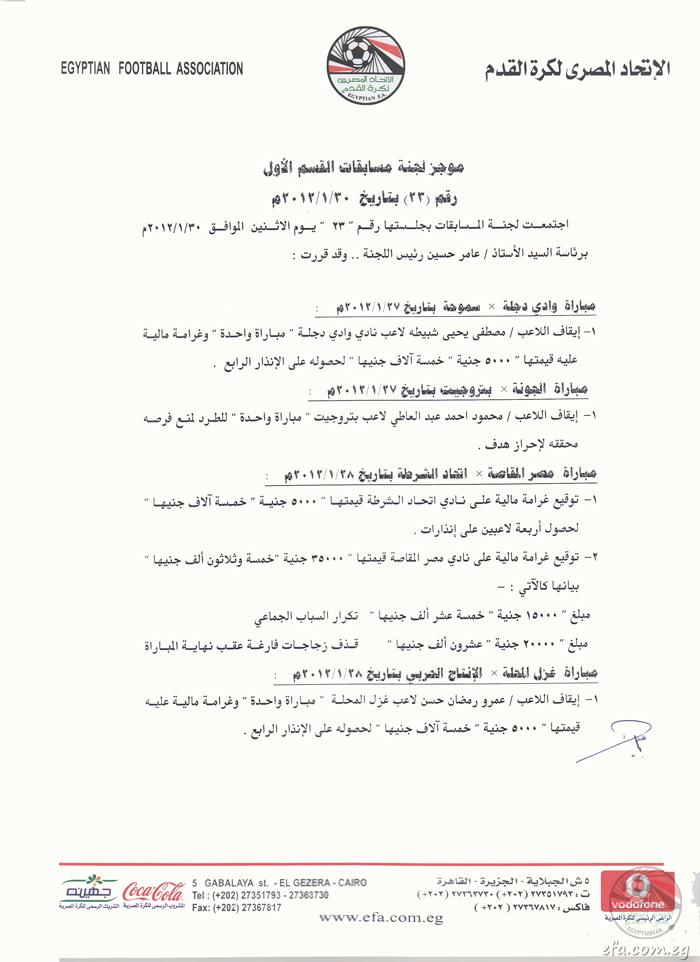 EGYPTIAN FOOTBALL ASSOCIATION
الاتحاد المصرى لكرة القدم
EGYPTIAN F.A.
الإتحاد المصرى لكرة القدم
موجز لجنة مسابقات القسم الأول
رقم (٢٣) بتاريخ ٢٠١٢/١/٣٠م
اجتمعت لجنة المسابقات بجلستها رقم " ٢٣ " يوم الاثنين الموافق ٢٠١٢/١/٣٠م
برئاسة السيد الأستاذ / عامر حسين رئيس اللجنة .. وقد قررت :
مباراة وادي دجلة × سموحة بتاريخ ٢٠١٢/١/٢٧م :
١- إيقاف اللاعب / مصطفى يحيى شبيطه لاعب نادي وادي دجلة " مباراة واحدة " وغرامة مالية
عليه قيمتها " ٥٠٠٠ جنية " خمسة آلاف جنيها " لحصوله على الإنذار الرابع .
مباراة الجونة × بتروجيت بتاريخ ٢٠١٢/١/٢٧م :
١- إيقاف اللاعب / محمود احمد عبد العاطي لاعب بتروجيت " مباراة واحدة " للطرد لمنع فرصه
محققه لإحراز هدف .
مباراة مصر المقاصة × اتحاد الشرطة بتاريخ ٢٠١٢/١/٢٨م :
١- توقيع غرامة مالية على نادي اتحاد الشرطة قيمتها " ٥٠٠٠ جنية " خمسة آلاف جنيها "
لحصول أربعة لاعبين على إنذارات .
٢- توقيع غرامة مالية على نادي مصر المقاصة قيمتها " ٣٥٠٠٠ جنية "خمسة وثلاثون ألف جنيها "
بيانها كالآتي : –
مبلغ " ١٥٠٠٠ جنية " خمسة عشر ألف جنيها " تكرار السباب الجماعي
مبلغ " ٢٠٠٠٠ جنية " عشرون ألف جنيها " قذف زجاجات فارغة عقب نهاية المباراة
مباراة غزل المحلة × الإنتاج الحربي بتاريخ ٢٠١٢/١/٢٨م :
١- إيقاف اللاعب / عمرو رمضان حسن لاعب غزل المحلة " مباراة واحدة " وغرامة مالية عليه
قيمتها " ٥٠٠٠ جنية " خمسة آلاف جنيها " لحصوله على الإنذار الرابع .
جهينه
الشريك الرسمى للكرة المصرية
Coca-Cola
المشروب الرسمى للكرة المصرية
5 GABALAYA st. - EL GEZERA - CAIRO
Tel : (+202) 27351793 - 27363730
Fax: (+202) 27367817
٥ ش الجبلاية - الجزيرة - القاهرة
ت : ٢٧٣٥١٧٩٣ (٢٠٢+) ٢٧٣٦٣٧٣٠ (٢٠٢+)
فاكس : ٢٧٣٦٧٨١٧ (٢٠٢+)
vodafone
الراعى الرئيسى للكرة المصرية
www.efa.com.eg
EGYPTIAN F.A.
efa.com.eg